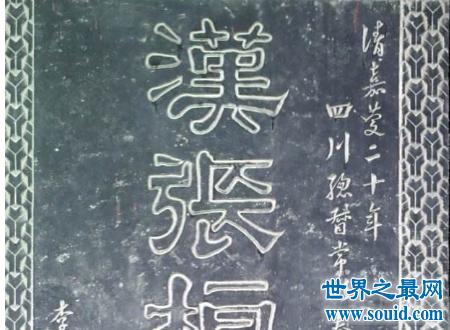 清嘉慶二十年
四川總督常
漢張桓
李
世界之最网
www.souid.com